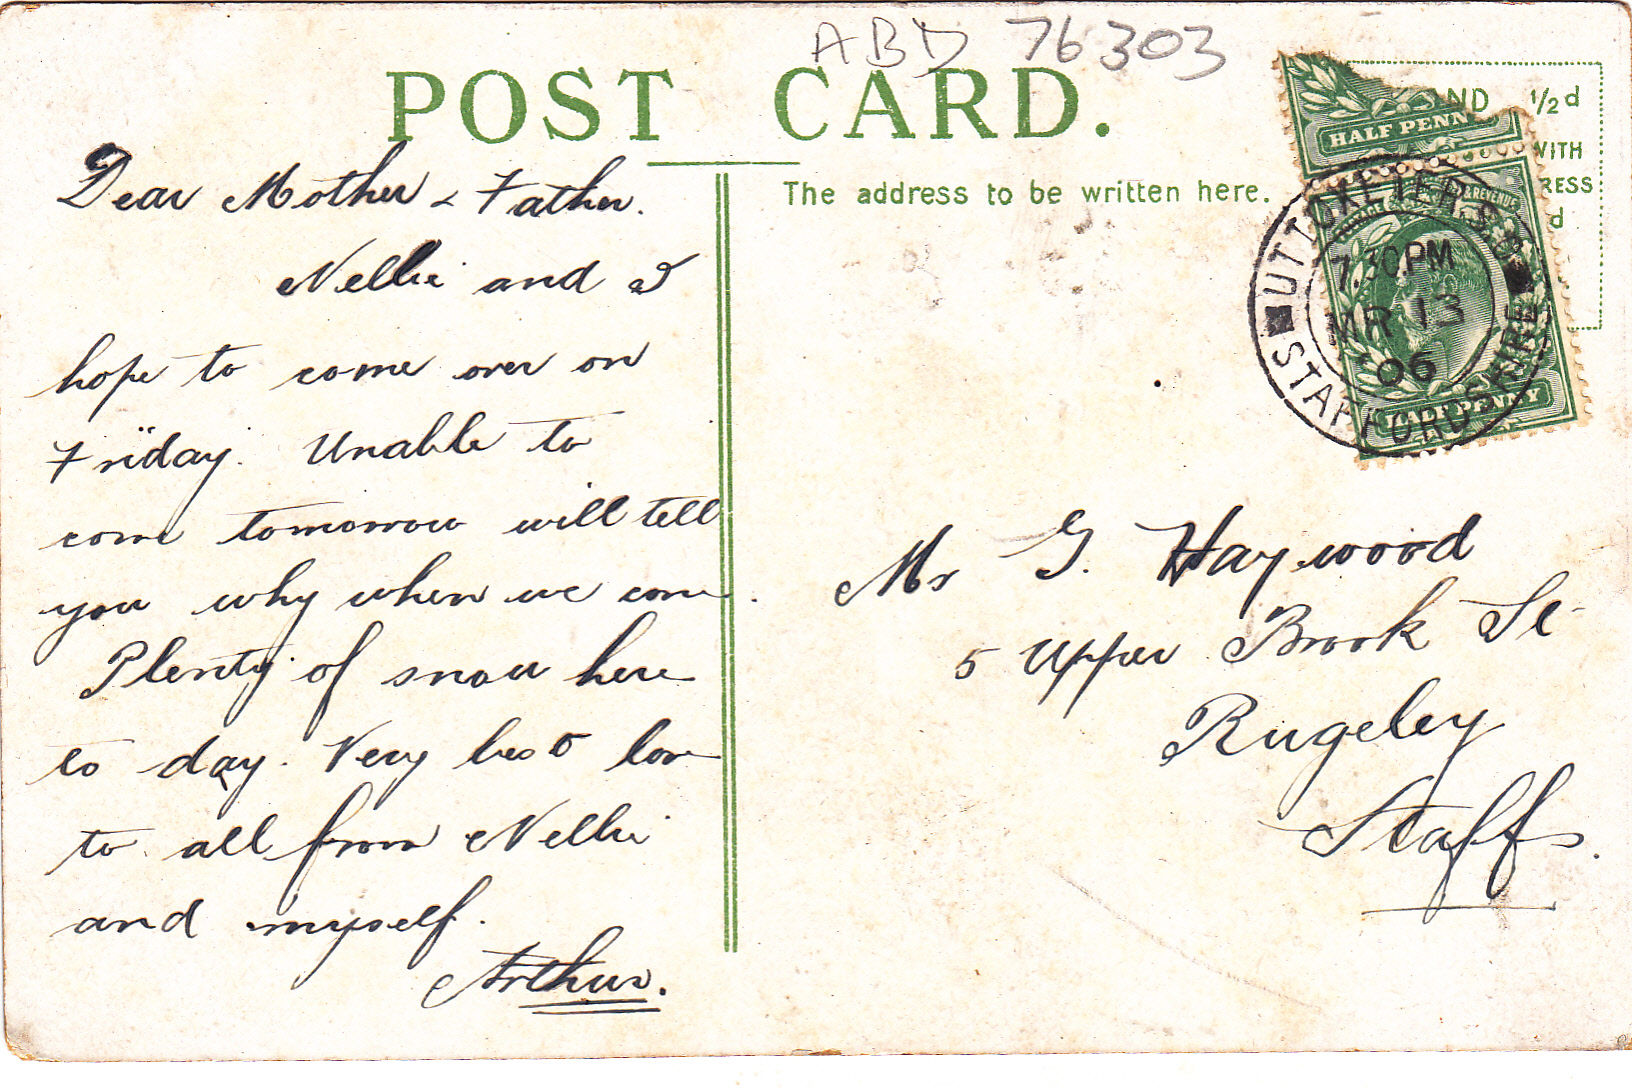 ABD 76303
POST CARD.
The address to be written here.
AND 1/2d
WITH
RESS
d
HALF PENN
REVENUE
HALF PENNY
UTTOXETER S.O
7.30PM
MR 13
06
STAFFORDSHIRE
Dear Mother & Father.
Nellie and I
hope to come over on
Friday. Unable to
come tomorrow will tell
you why when we come.
Plenty of snow here
to day. Very best love
to all from Nellie
and myself.
Arthur.
Mr G. Haywood
5 Upper Brook St
Rugeley
Staffs.